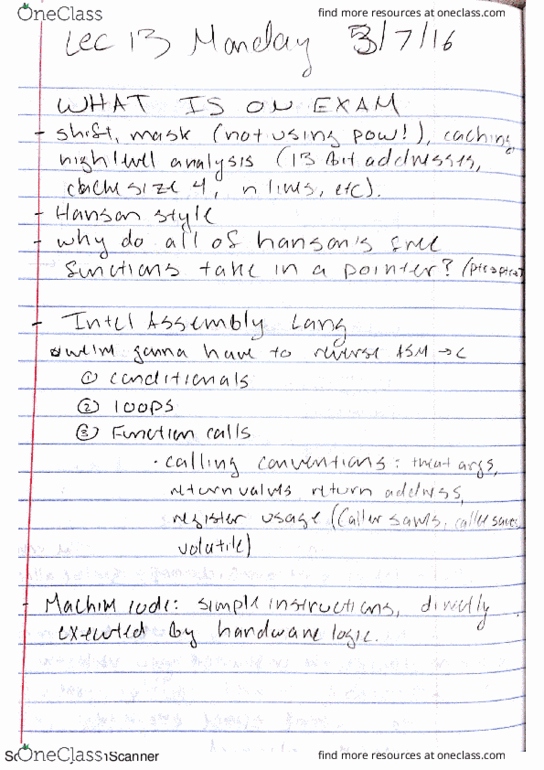 OneClass
find more resources at oneclass.com
Lec 13 Monday 3/7/16
WHAT IS ON EXAM
- shift, mask (not using pow!), caching,
high level analysis (13 bit addresses,
cache size 4, n lines, etc).
- Hanson style
- why do all of hanson's free
functions take in a pointer?
- Intel Assembly Lang
gonna have to reverse ASM → C
① conditionals
② loops
③ Function calls
• calling conventions: args,
return values, return address,
register usage (caller saves, callee saves,
volatile)
- Machine code: simple instructions, directly
executed by hardware logic.
OneClass
Scanner
find more resources at oneclass.com